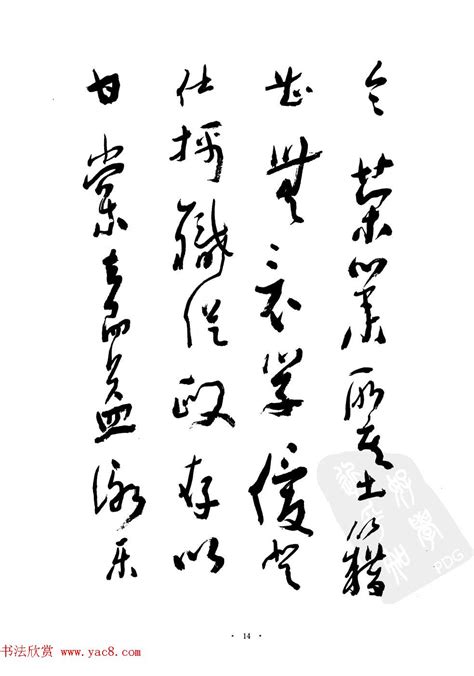 令荣業所基籍
甚無竟学優登
仕攝職從政存以
甘棠去而益詠乐
PDG
· 14 ·
书法欣赏 www.yac8.com